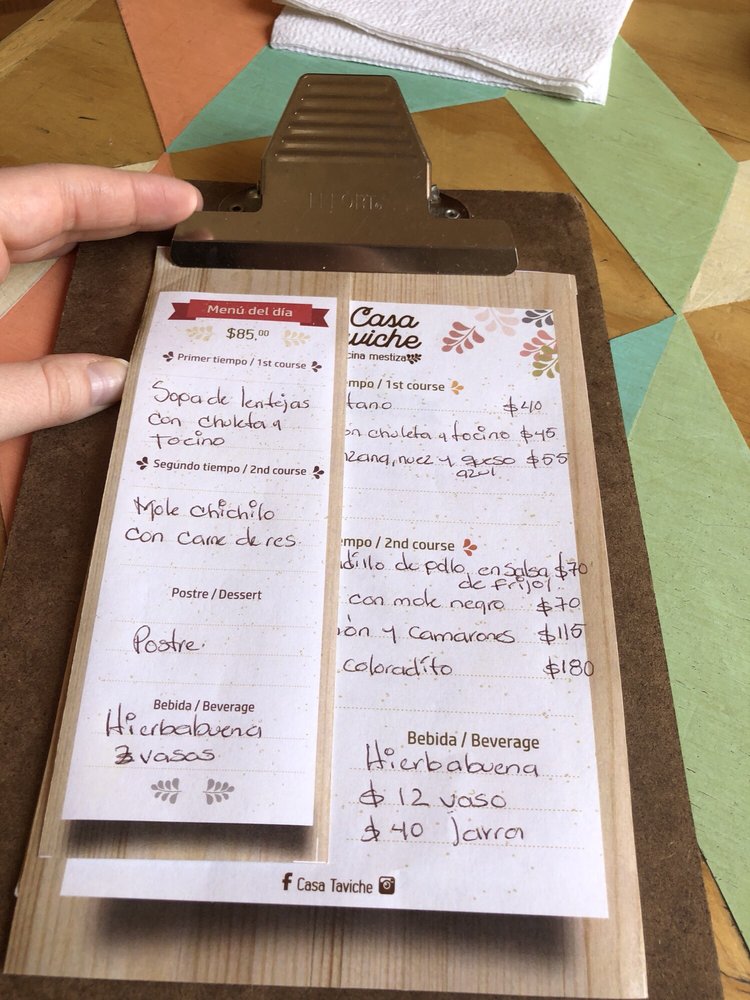 Menú del día
$85.00
Primer tiempo / 1st course
Sopa de lentejas
con chuleta y
tocino
Segundo tiempo / 2nd course
Mole chichilo
con carne de res
Postre / Dessert
Postre.
Bebida / Beverage
Hierbabuena
2 vasos
Casa
viche
cina mestiza
empo / 1st course
tano $40
on chuleta y tocino $45
nzana, nuez y queso $55
azul
empo / 2nd course
dillo de pollo, en salsa $70
de frijol
con mole negro $70
ón y camarones $115
coloradito $180
Bebida / Beverage
Hierbabuena
$12 vaso
$40 jarra
f Casa Taviche